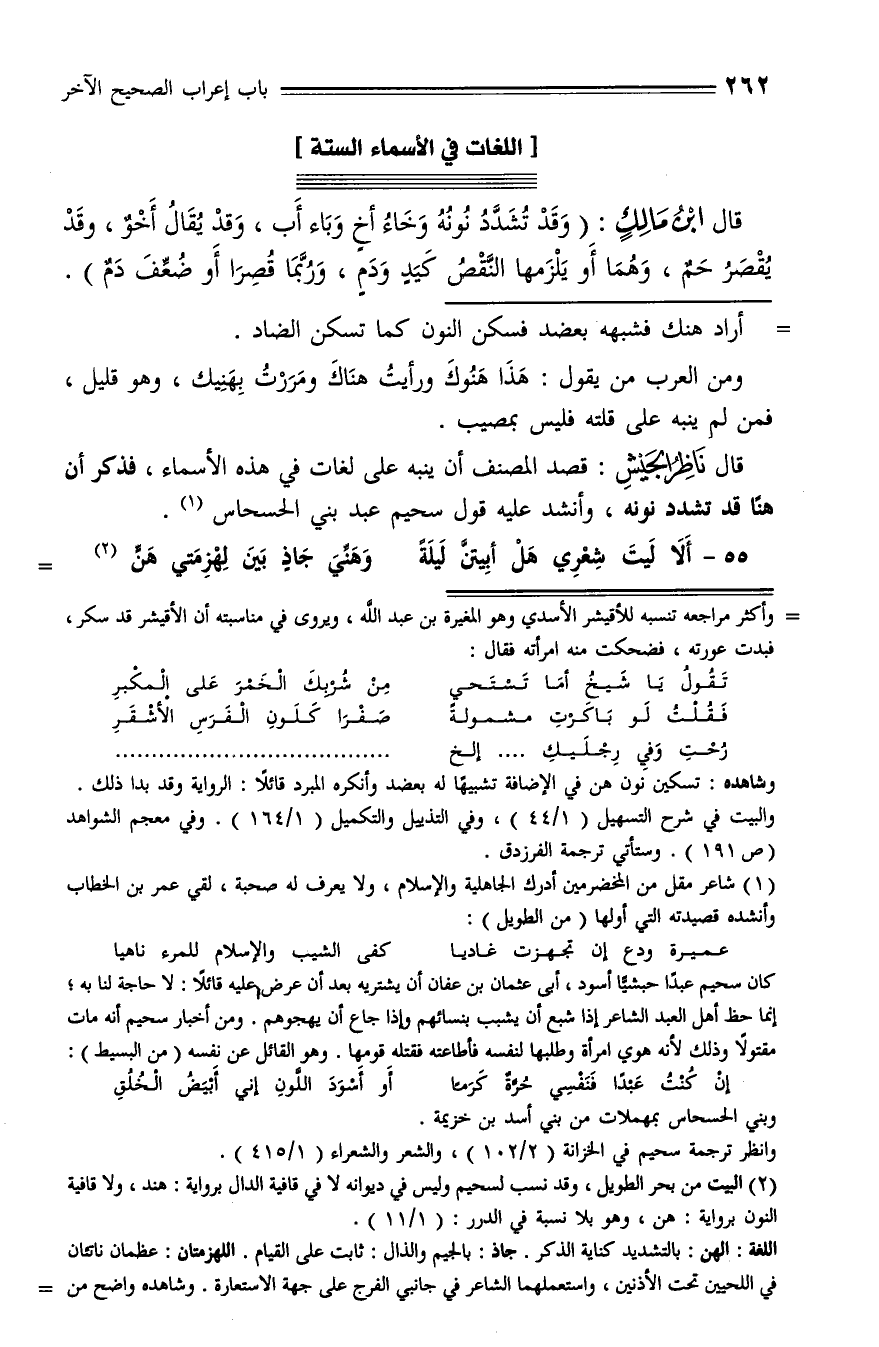 ٢٦٢ باب إعراب الصحيح الآخر
[ اللغات في الأسماء الستة ]
قال ابْنُ مَالِكٍ : ( وَقَدْ تُشَدَّدُ نُونُهُ وَخَاءُ أخٍ وَبَاء أَب ، وَقدْ يُقَالُ أَخْوٌ ، وقَدْ
يُقْصَرُ حَمٌ ، وَهُمَا أَو يَلْزَمها النَّقْصُ كَيَدٍ وَدَمٍ ، وَرُبَّمَا قُصِرَا أَو ضُعِّفَ دَمٌ ) .
= أراد هنك فشبهه بعضد فسكن النون كما تسكن الضاد .
ومن العرب من يقول : هَذَا هَنُوكَ ورأيتُ هنَاكَ ومَرَرْتُ بِهَنِيك ، وهو قليل ،
فمن لم ينبه على قلته فليس بمصيب .
قال نَاظِرُ الجَيْشِ : قصد المصنف أن ينبه على لغات في هذه الأسماء ، فذكر أن
هنًا قد تشدد نونه ، وأنشد عليه قول سحيم عبد بني الحسحاس (١) .
٥٥ - أَلَا لَيتَ شِعْرِي هَلْ أبِيتنَّ لَيلَةً وَهَنِّيَ جَاذٍ بَينَ لِهْزِمَتي هَنِّ (٢) =
= وأكثر مراجعه تنسبه للأقيشر الأسدي وهو المغيرة بن عبد اللَّه ، ويروى في مناسبته أن الأقيشر قد سكر ،
فبدت عورته ، فضحكت منه امرأته فقال :
تَـقُولُ يَا شَيخُ أمَا تَسْتَحي مِنْ شُرْبِكَ الْخَمْرَ عَلى الْمكْبرِ
فَقُلْتُ لَو بَاكَرْتِ مشمولةً صَفْرَا كَلَونِ الْفَرَسِ الأَشْقَرِ
رُحْتِ وَفي رِجْلَيكِ .... إلخ ...................................
وشاهده : تسكين نون هن في الإضافة تشبيهًا له بعضد وأنكره المبرد قائلًا : الرواية وقد بدا ذلك .
والبيت في شرح التسهيل ( ٤٤/١ ) ، وفي التذييل والتكميل ( ١٦٤/١ ) . وفي معجم الشواهد
( ص ١٩١ ) . وستأتي ترجمة الفرزدق .
(١) شاعر مقل من المخضرمين أدرك الجاهلية والإسلام ، ولا يعرف له صحبة ، لقي عمر بن الخطاب
وأنشده قصيدته التي أولها ( من الطويل ) :
عميرة ودع إن تجهزت غاديا كفى الشيب والإسلام للمرء ناهيا
كان سحيم عبدًا حبشيًّا أسود ، أبى عثمان بن عفان أن يشتريه بعد أن عرض عليه قائلًا : لا حاجة لنا به ؛
إنما حظ أهل العبد الشاعر إذا شبع أن يشبب بنسائهم وإذا جاع أن يهجوهم . ومن أخبار سحيم أنه مات
مقتولًا وذلك لأنه هوي امرأة وطلبها لنفسه فأطاعته فقتله قومها . وهو القائل عن نفسه ( من البسيط ) :
إنْ كُنْتُ عَبْدًا فَنَفْسِي حُرَّةٌ كَرَمًا أَو أَسْوَدَ اللَّونِ إني أَبْيَضُ الْخُلُقِ
وبني الحسحاس بمهملات من بني أسد بن خزيمة .
وانظر ترجمة سحيم في الخزانة ( ١٠٢/٢ ) ، والشعر والشعراء ( ٤١٥/١ ) .
(٢) البيت من بحر الطويل ، وقد نسب لسحيم وليس في ديوانه لا في قافية الدال برواية : هند ، ولا قافية
النون برواية : هن ، وهو بلا نسبة في الدرر : ( ١١/١ ) .
اللغة : الهن : بالتشديد كناية الذكر . جاذ : بالجيم والذال : ثابت على القيام . اللهزمتان : عظمان ناتئان
في اللحيين تحت الأذنين ، واستعملهما الشاعر في جانبي الفرج على جهة الاستعارة . وشاهده واضح من =